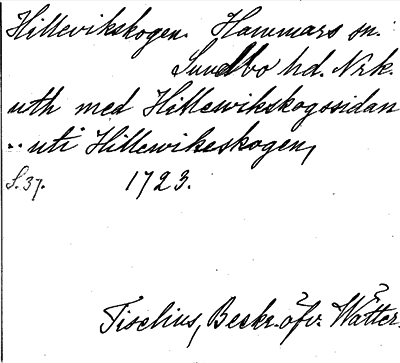 Hillevikskogen. Hammars sn.
Sundbo hd. Nrk.
uth med Hillewikskogssidan
.. uti Hillewikeskogen,
S. 37. 1723.
Tiselius, Beskr. öfv. Wätter.